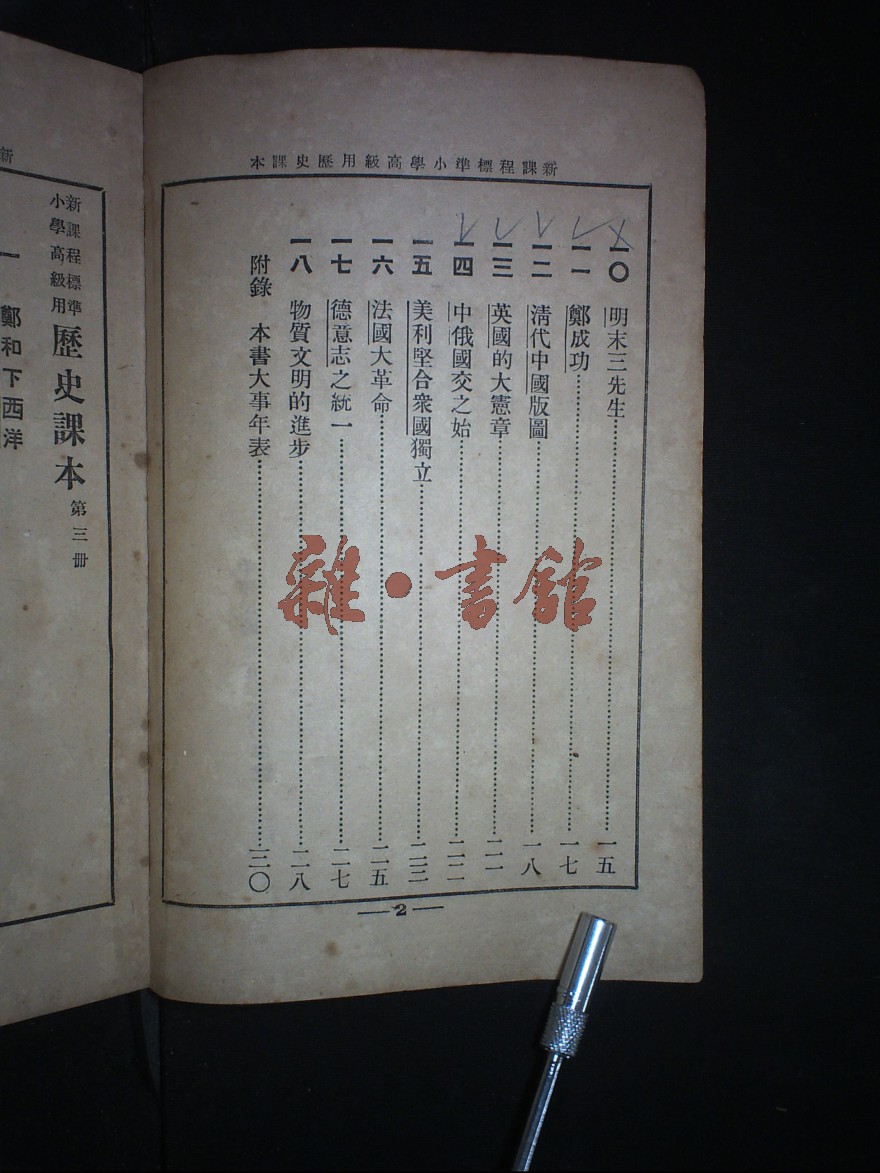 新課程標準小學高級用歷史課本
一〇 明末三先生……一五
一一 鄭成功……一七
一二 清代中國版圖……一八
一三 英國的大憲章……二一
一四 中俄國交之始……二二
一五 美利堅合衆國獨立……二三
一六 法國大革命……二五
一七 德意志之統一……二七
一八 物質文明的進步……二八
附錄 本書大事年表……三〇
—2—
新
新課程標準
小學高級用
歷史課本 第三册
一 鄭和下西洋
雜·書館